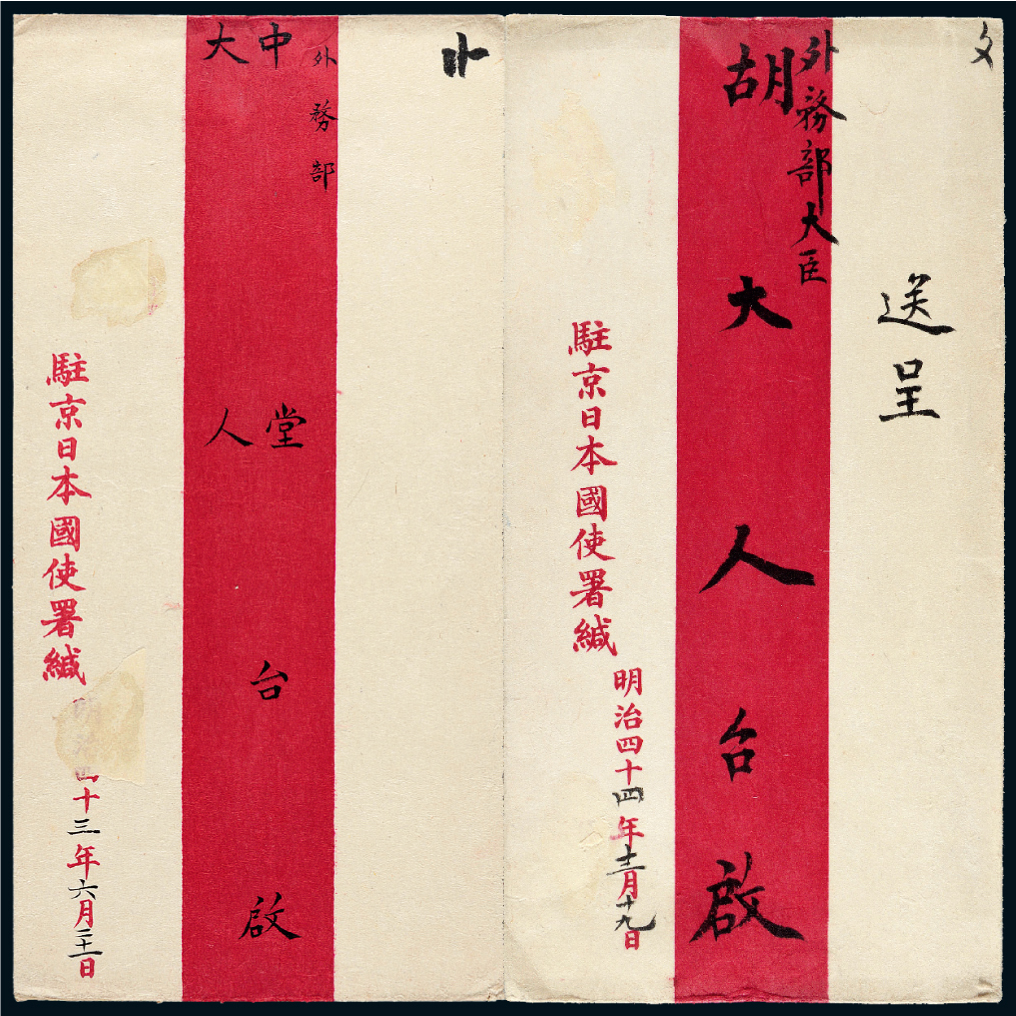 送呈
外務部大臣
胡大人台啟
駐京日本國使署緘
明治四十四年十二月十九日
外務部
中堂
大人
台啟
駐京日本國使署緘
四十三年六月二十一日